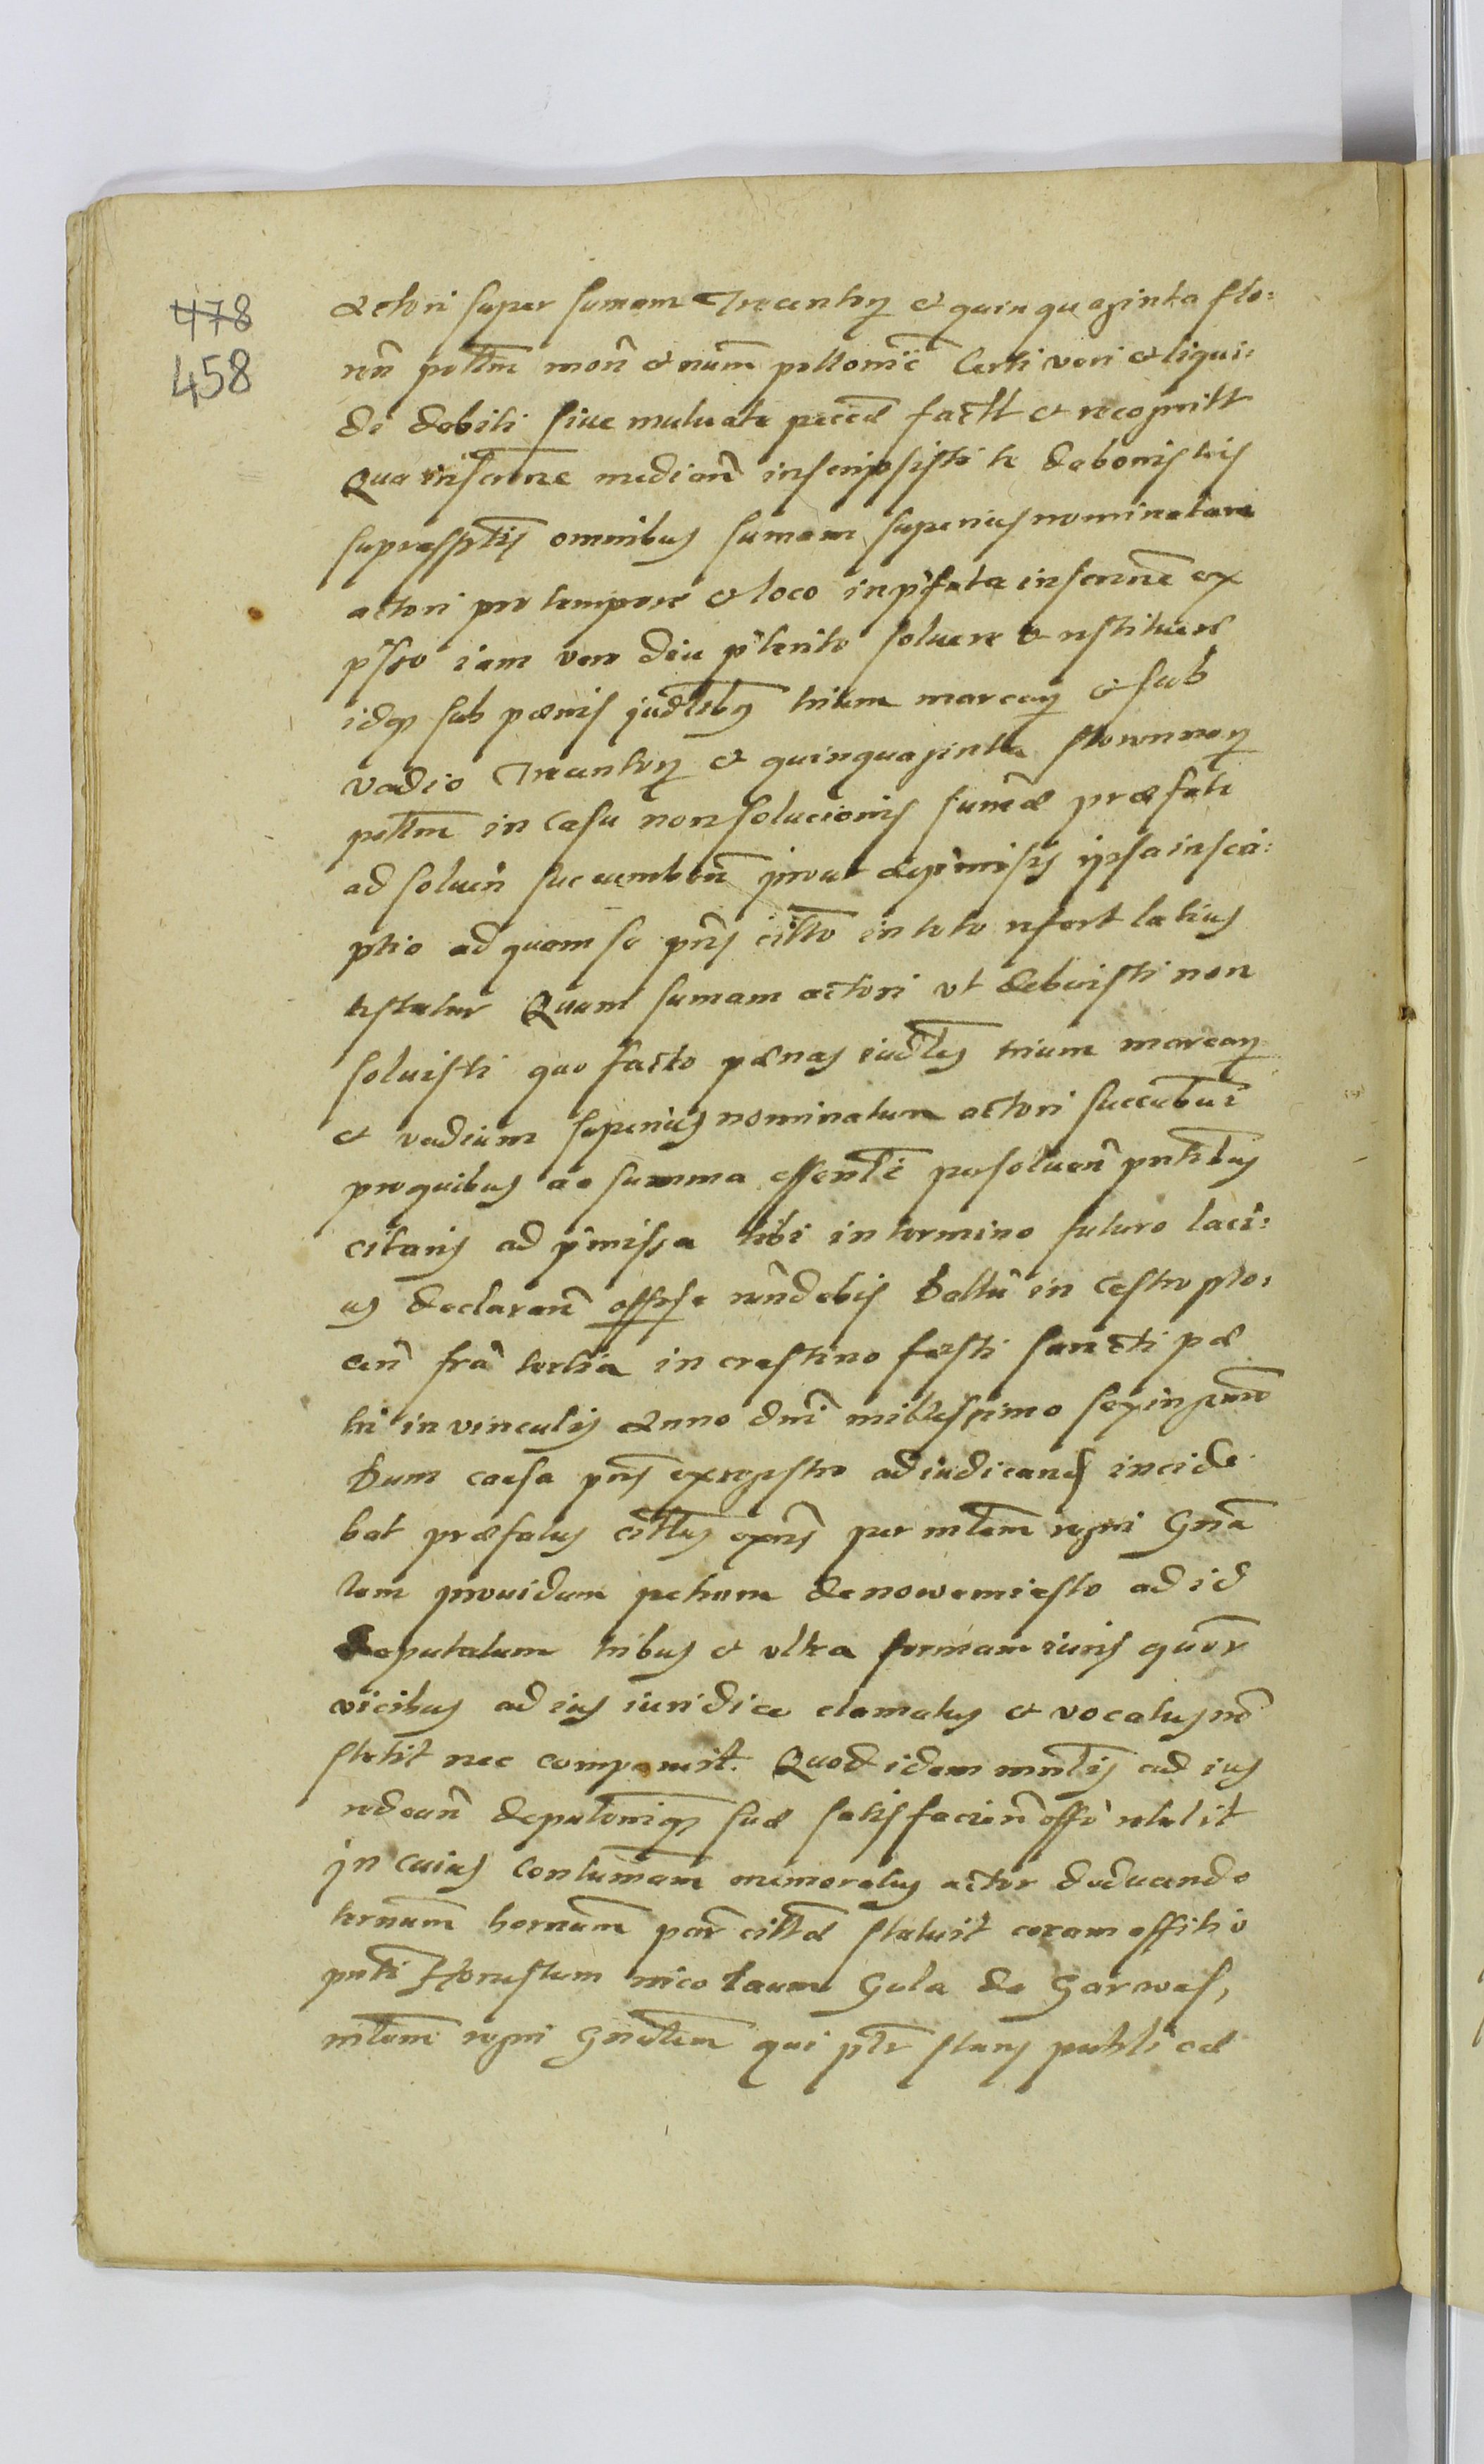 478
458
Actori super sumam Trecentoꝝ et quinquaginta flo:
ren̄ polłm mon̄ et num̄ pollonic̄ Certi veri et liqui:
di debiti siue mutuatæ pecciæ factt et recognitt
Qua inscrnne median̄ inscripsisti te de bonis tuis
suprasptis omnibus sumam superius nominatam
actori pro tempore et loco in p̄fata inscrnne ex
p̄sso iam vero diu p̄terito soluere et restituere
idq3 sub pœnis judlibus trium marcaꝝ et sub
vadio Trecentoꝝ et quinquaginta florennoꝝ
polłm in Casu non solucionis sumæ præfatæ
ad soluen̄ succumben̄ prout de p̄missis ipsa inscri:
ptio ad quam se p̄ns citto in toto refert latius
testatur Quam sumam actori vt debuisti non
soluisti quo facto pœnas iudles trium marcaꝝ
et vadium superius nominatum actori succubui
pro quibus ac summa essentli persoluen̄ pntibus
citaris ad p̄missa tibi in termino futuro laci:
us declaran̄ offose rn̄debis Dattū in Castro plo:
cen̄ frā tertia in crastino festi sancti pe
tri in vinculis Anno dni millesimo sexingmo
Dum causa pns ex regestro ad iudicand incide
bat præfatus cittus expns per mlem regni Gna
lem prouidum petrum de nowemiasto ad id
deputatum tribus et vltra formam iuris quor
vicibus ad ius iuridice clamatus et vocatus nō
stetit nec comparuit. Quod idem mnlis ad ius
redeun̄ deputoniq3 suæ satisfacien̄ offo retulit
in cuius Contumam memoratus actor deducendo
ternum ternum par cittæ statuit coram offitio
pnti Honestum nicolaum Gula de Garwas,
mlem regni Gnalem qui pltr stans publicæ